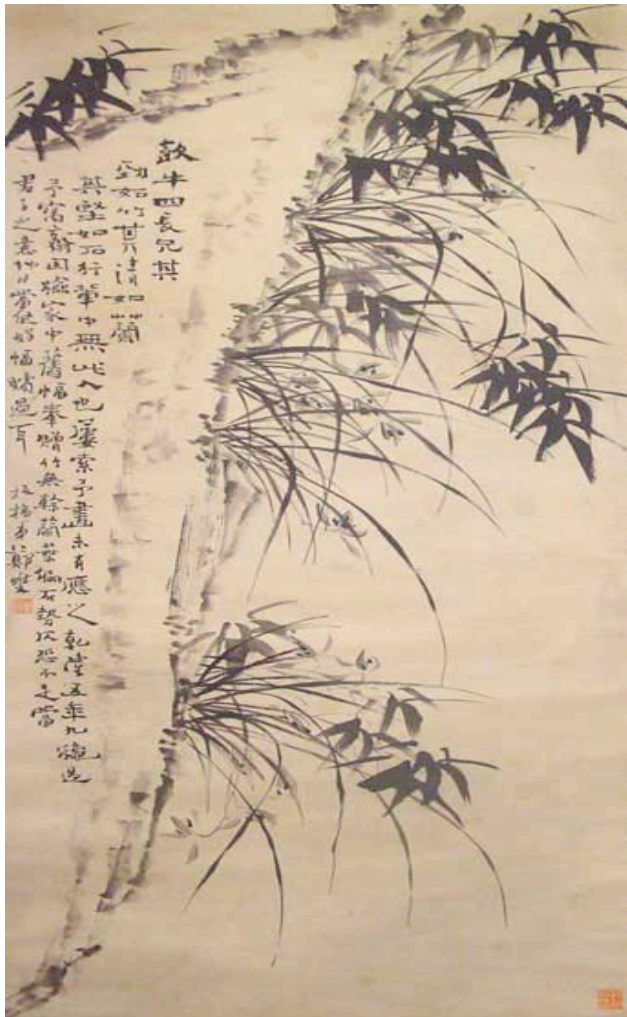 牛四長兄其
勁如竹其清如蘭
其堅如石行輩中無此人也屢索予畫未有應之乾隆五年九秋過
予寓齋因檢家中舊幅奉贈竹無餘蘭葉偏石勢仄恐不足當
君子之意他日當作好幅贖過耳 板橋弟鄭燮